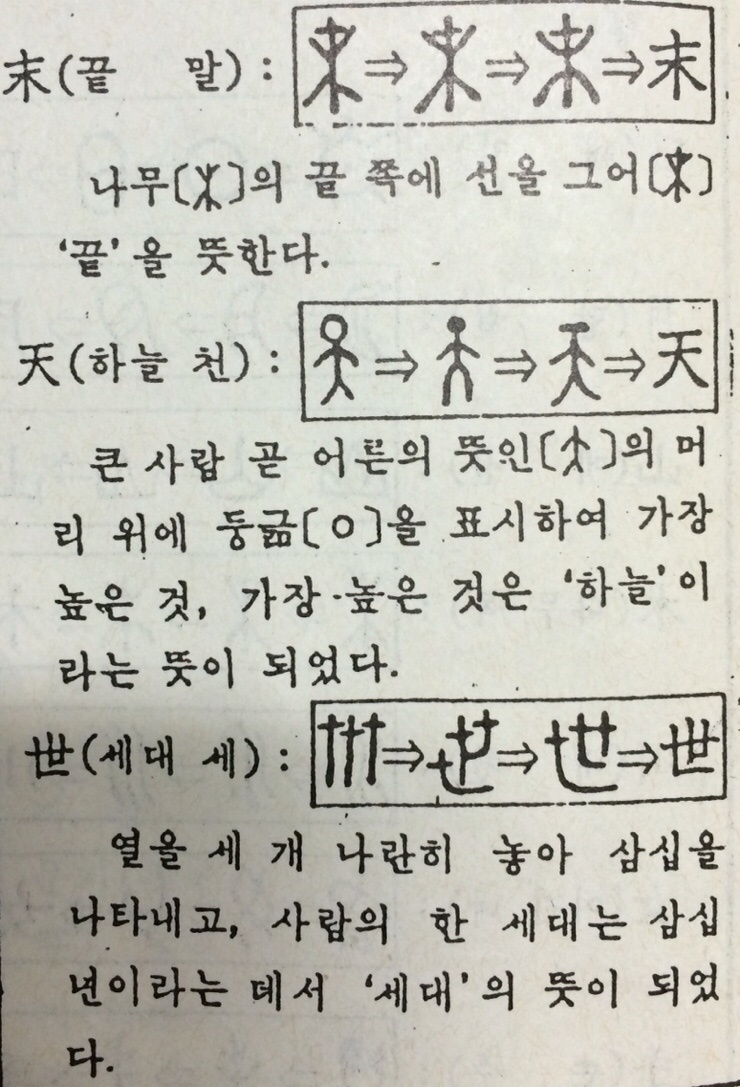 末(끝 말) : ⇒ ⇒ ⇒末
나무[]의 끝 쪽에 선을 그어[]
‘끝’을 뜻한다.
天(하늘 천) : ⇒ ⇒ ⇒天
큰 사람 곧 어른의 뜻인[]의 머
리 위에 둥긂[ㅇ]을 표시하여 가장
높은 것, 가장 높은 것은 ‘하늘’이
라는 뜻이 되었다.
世(세대 세) : ⇒ ⇒ ⇒世
열을 세 개 나란히 놓아 삼십을
나타내고, 사람의 한 세대는 삼십
년이라는 데서 ‘세대’의 뜻이 되었
다.